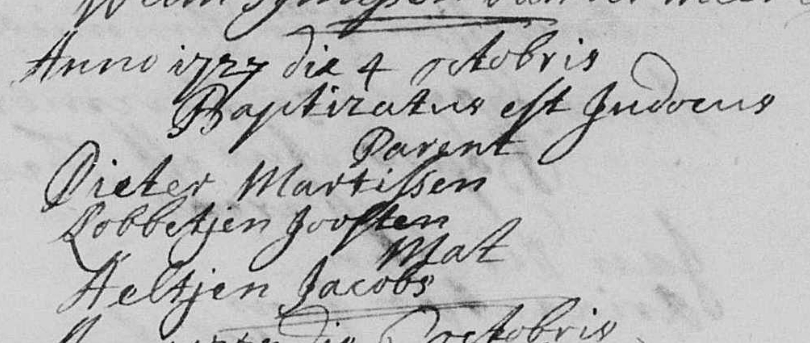 Anno 1727 die 4 octobris
Baptizatus est Judocus
Parent
Pieter Martissen
Lobbetjen Joosten
Mat
Aeltjen Jacobs
die octobris